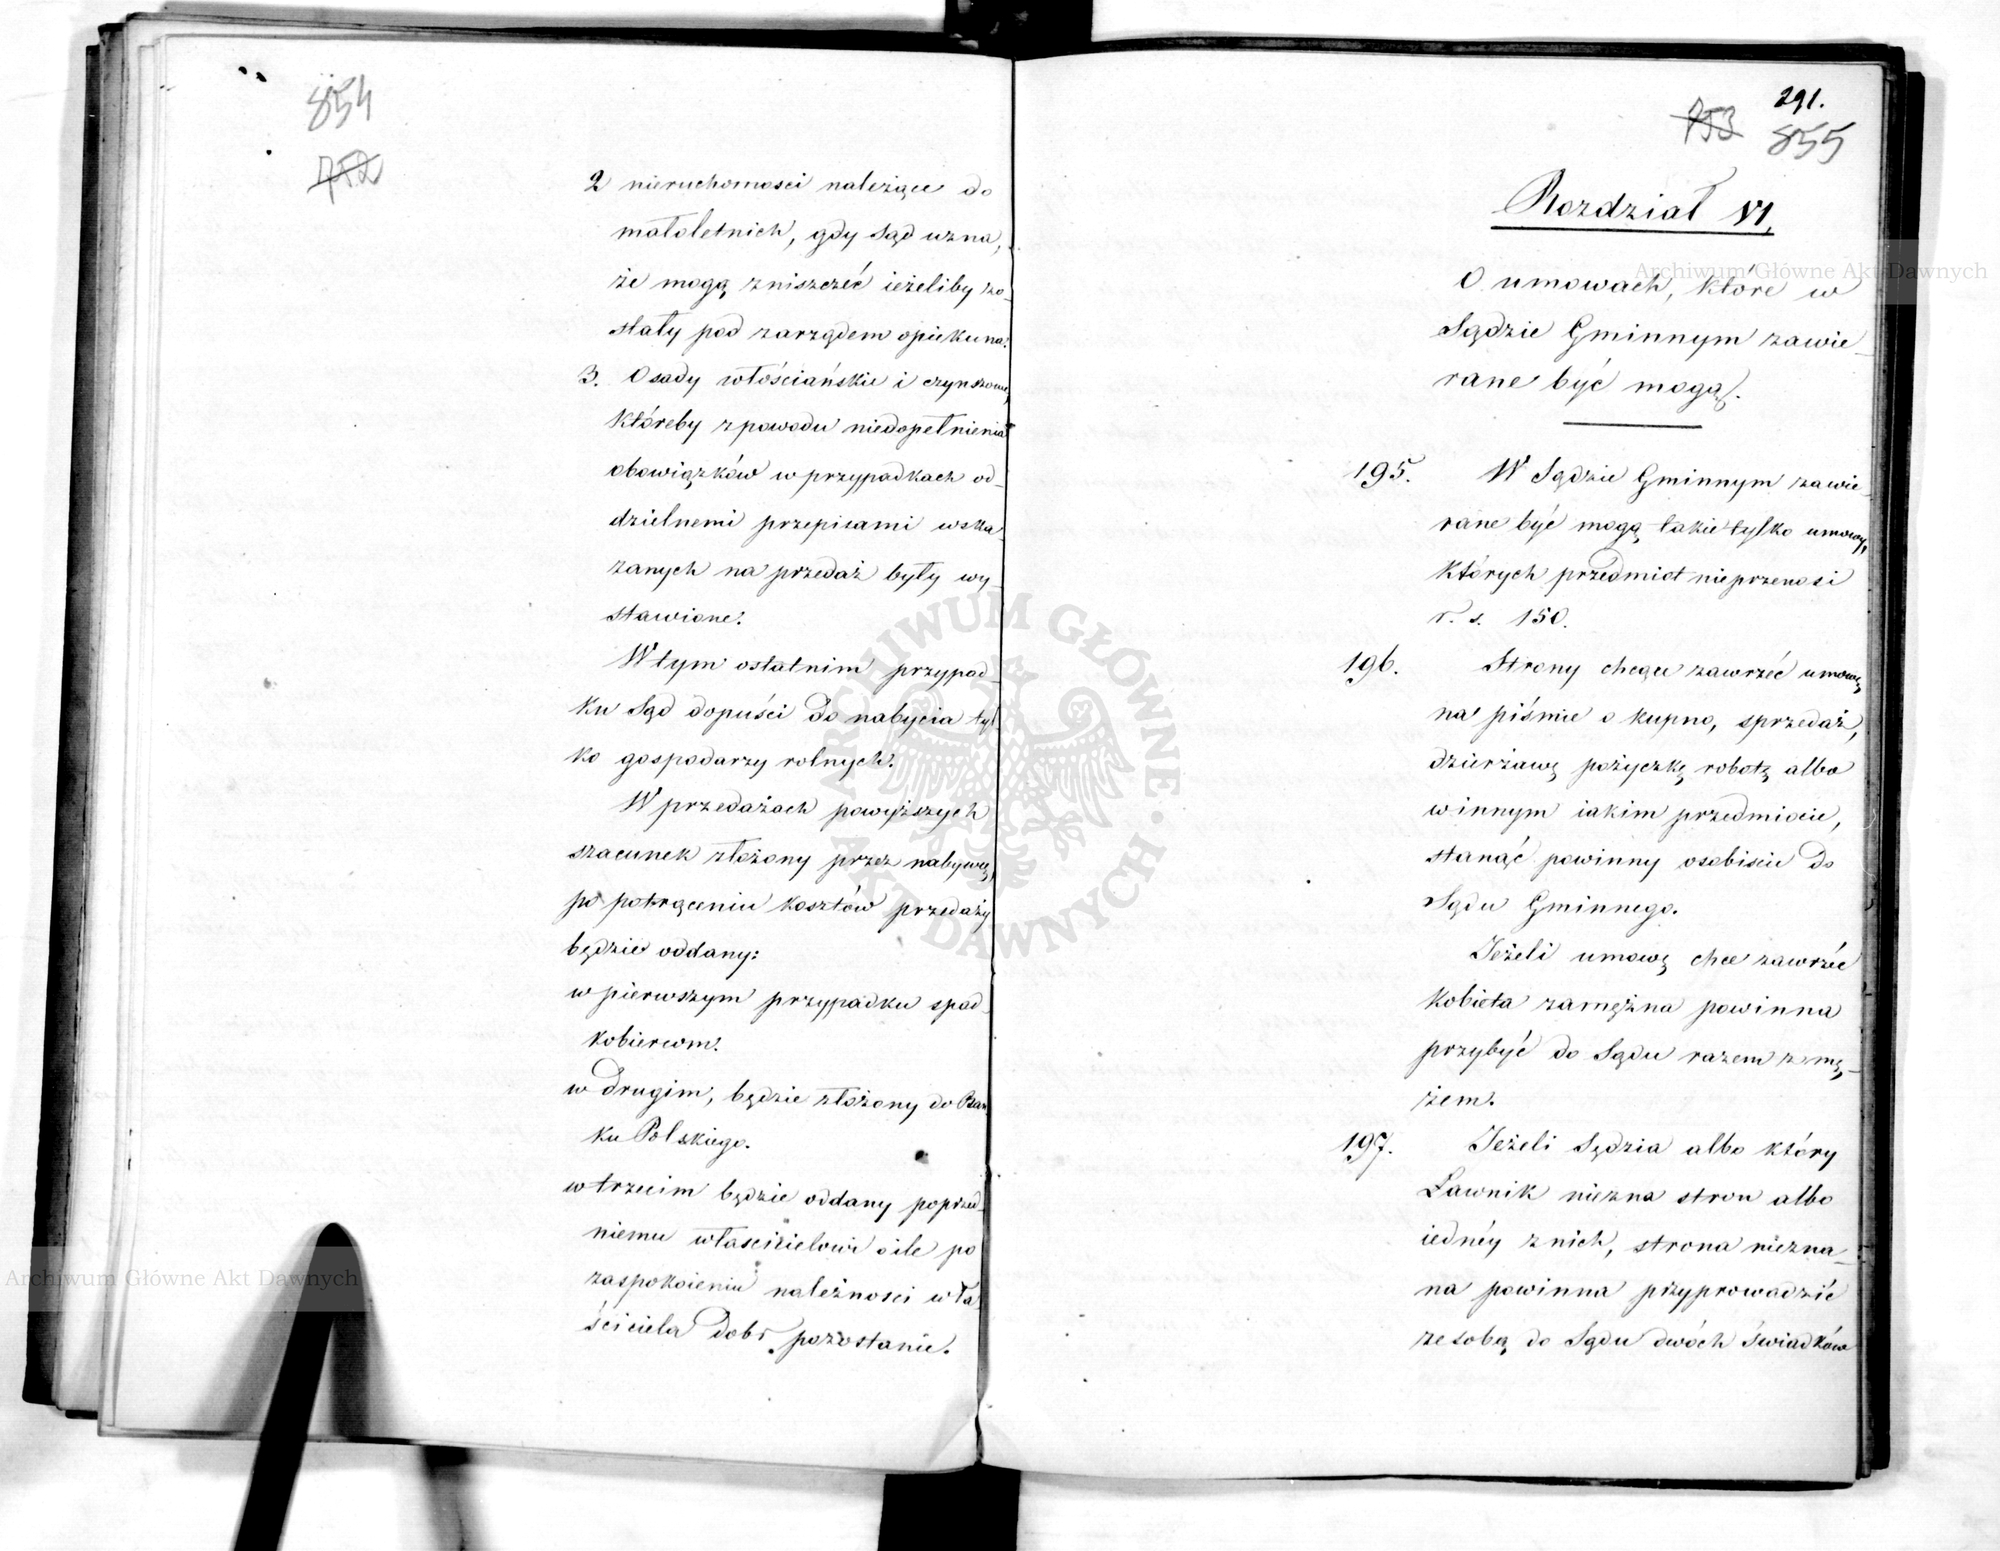 854
752
2 nieruchomosci należące do
małoletnich, gdy Sąd uzna,
że mogą zniszczéć ieżeliby zo-
stały pod zarządem opiekuna.
3. Osady włościańskie i czynszowe,
któreby zpowodu niedopełnienia
obowiązków w przypadkach od-
dzielnemi przepisami wska-
zanych na przedaż były wy-
stawione.
W tym ostatnim przypad-
ku Sąd dopuści do nabycia tyl-
ko gospodarzy rolnych.
W przedażach powyższych
szacunek złożony przez nabywcę,
po potrąceniu kosztów przedaży
będzie oddany:
w pierwszym przypadku spad-
kobiercom.
w drugim, będzie złożony do Ban-
ku Polskiego.
w trzecim będzie oddany poprzed-
niemu właścicielowi o ile po
zaspokoieniu należnosci wła-
ściciela dobr pozostanie.
291.
753 855
Rozdział VI,
O umowach, które w
Sądzie Gminnym zawie-
rane być mogą.
195. W Sądzie Gminnym zawie-
rane być mogą takie tylko umowy,
których przedmiot nieprzenosi
r. s. 150.
196. Strony chcące zawrzéć umowę,
na piśmie o kupno, sprzedaż,
dzierżawę pożyczkę robotę albo
w innym iakim przedmiocie,
stanąć powinny osobiscie do
Sądu Gminnego.
Jeżeli umowę chce zawrzéć
kobieta zamężna powinna
przybyć do Sądu razem z mę-
żem.
197. Jeżeli Sędzia albo który
Ławnik niezna stron albo
iednéy z nich, strona niezna-
na powinna przyprowadzić
ze sobą do Sądu dwóch świadków
Archiwum Główne Akt Dawnych
Archiwum Główne Akt Dawnych
ARCHIWUM GŁÓWNE AKT DAWNYCH